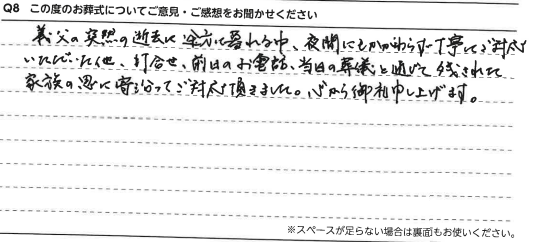 Q8 この度のお葬式についてご意見・ご感想をお聞かせください
義父の突然の逝去に途方に暮れる中、夜間にもかかわらず丁寧にご対応
いただいた他、打合せ、前日のお電話、当日の葬儀と通じて残された
家族の思に寄り沿ってご対応頂きました。心から御礼申し上げます。
※スペースが足らない場合は裏面もお使いください。